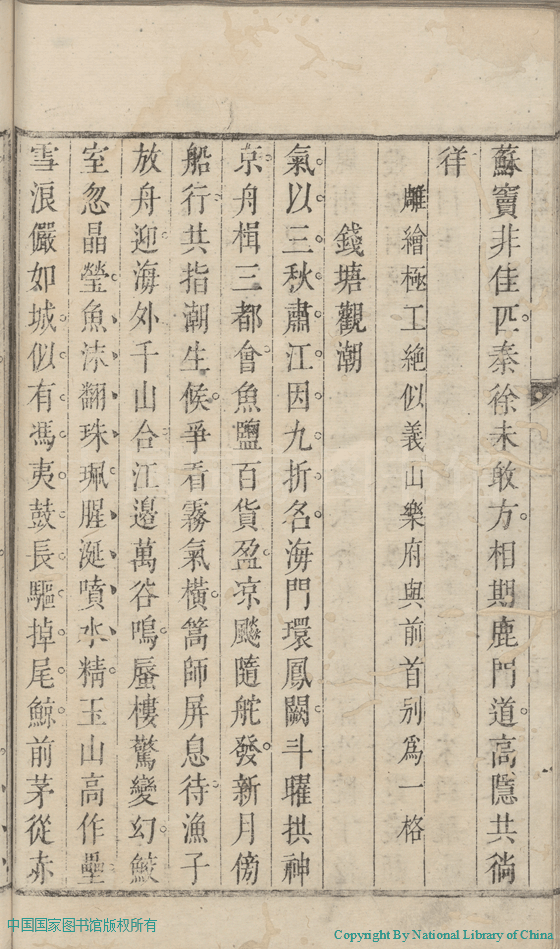 蘇竇非佳匹秦徐未敢方相期鹿門道高隱共徜
徉
雕繪極工絶似義山樂府與前首別爲一格
錢塘觀潮
氣以三秋肅江因九折名海門環鳳闕斗曜拱神
京舟楫三都會魚鹽百貨盈凉飈隨舵發新月傍
船行共指潮生候爭看霧氣橫篙師屏息待漁子
放舟迎海外千山合江邊萬谷鳴蜃樓驚變幻鮫
室忽晶瑩魚沫翻珠珮腥涎噴水精玉山高作壘
雪浪儼如城似有馮夷鼓長驅掉尾鯨前茅從赤
中国国家图书馆版权所有
Copyright By National Library of China